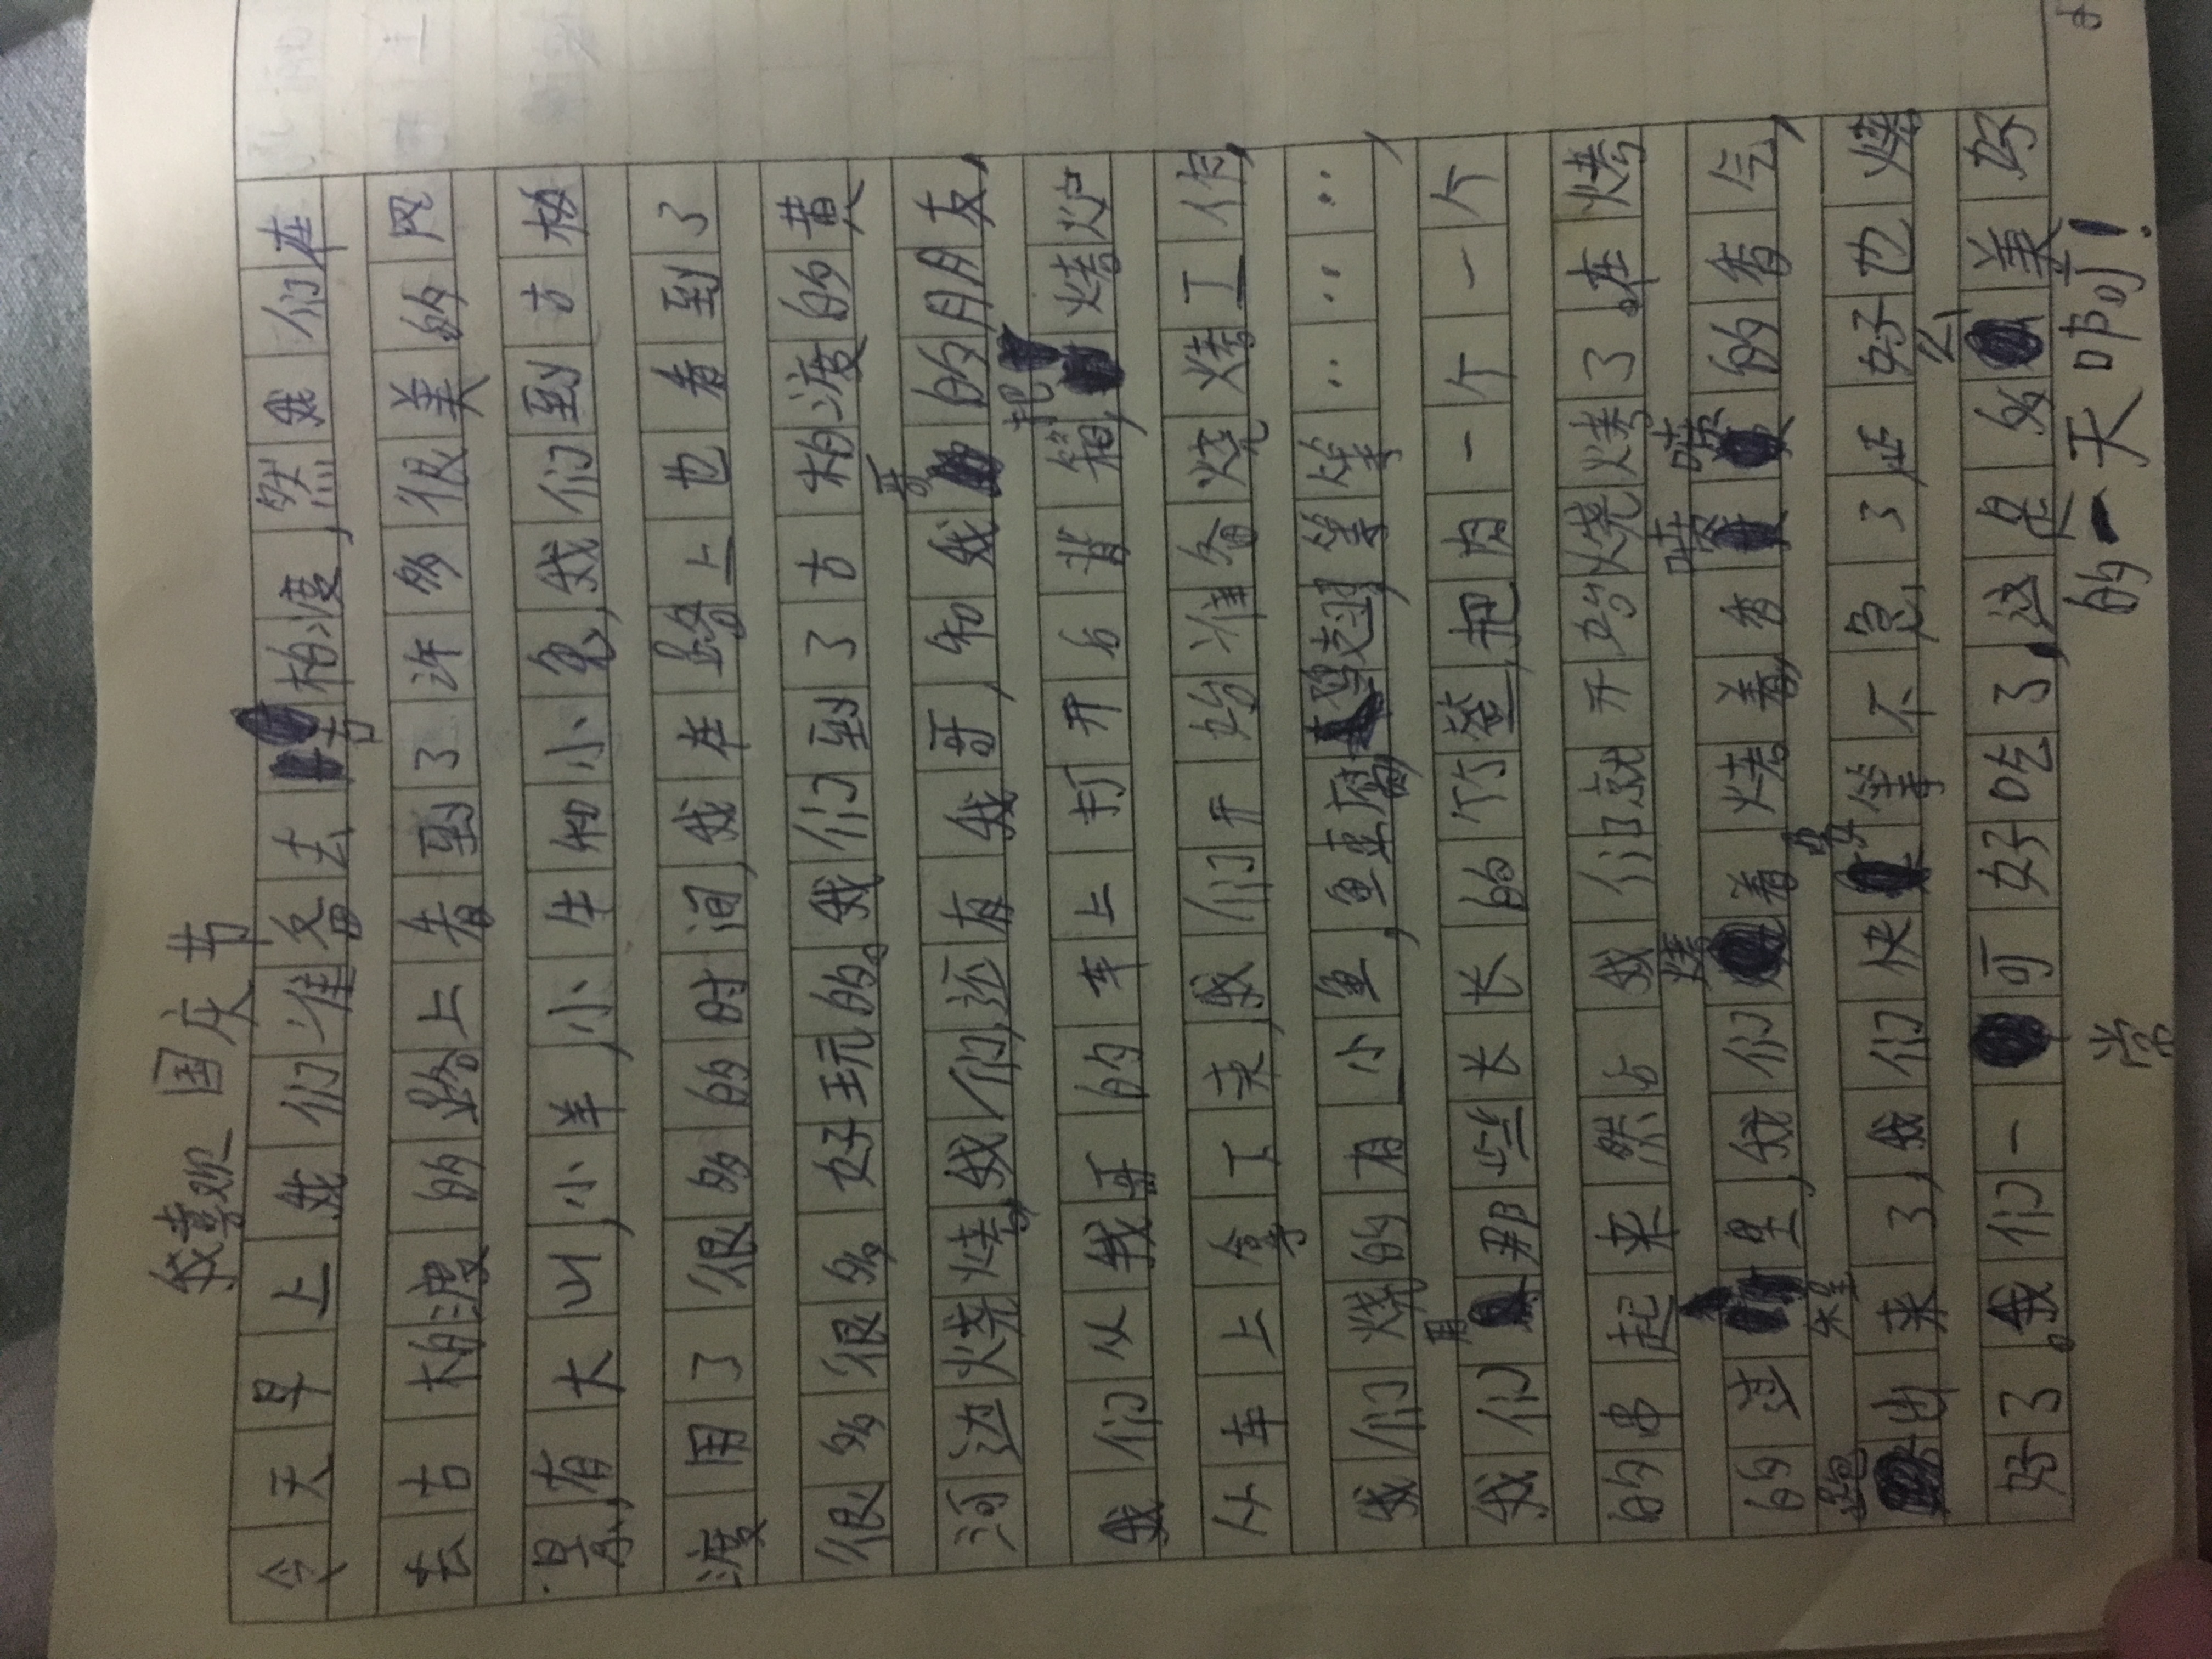 我喜欢国庆节
今天早上我们准备去古柏渡,然我们在
去古柏渡的路上看到了许多很美的风
景,有大山,小羊,小牛和小兔,我们到古柏
渡用了很多的时间,我在路上也看到了
很多很多好玩的。我们到了古柏渡的黄
河边烧烤。我们,还有我哥,和我哥的朋友,
我们从我哥的车上打开后背箱,把烤炉
从车上拿了下来,我们开始准备烧烤工作,
我们烧的有小鱼,鱼豆腐,鸡翅,等等………,
我们用那些长长的竹签,把肉一个一个
的串起来然后我们就开始烧烤了。在烤
的过程里,我们烧着烤着,香喷喷的香气,
跑出来了,我们快等不急了,正好也烤
好了。我们一尝可好吃了,这是多么美好
的一天啊!